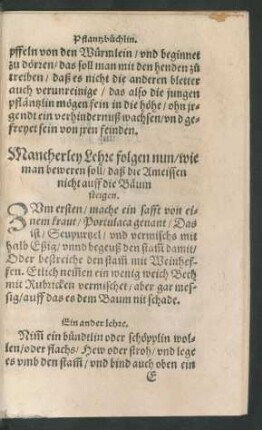 Pflantzbüchlin.
pffeln von den Würmlein / vnd beginnet
zu dörzen / das soll man mit den henden zů
treiben / daß es nicht die anderen bletter
auch verunreinige / das also die jungen
pfläntzlin mögen fein in die höhe / ohn jr-
gendt ein verhindernuß wachsen / vnd ge-
freyet sein von jren feinden.
Mancherley Lehre folgen nun / wie
man beweren soll / daß die Ameissen
nicht auff die Bäum
steigen.
ZVm ersten / mache ein safft von ei-
nem kraut / Portulaca genant / Das
ist / Seupurtzel / vnd vermischs mit
halb Eßig / vnnd begeuß den stam̃ damit /
Oder bestreiche den stam̃ mit Weinhef-
fen. Etlich nem̃en ein wenig weich Bech
mit Rubricken vermischet / aber gar mes-
sig / auff das es dem Baum nit schade.
Ein ander lehre.
Nim̃ ein bündtlin oder schöpplin wol-
len / oder flachs / Hew oder stroh / vnd lege
es vmb den stam̃ / vnd bind auch oben ein
E